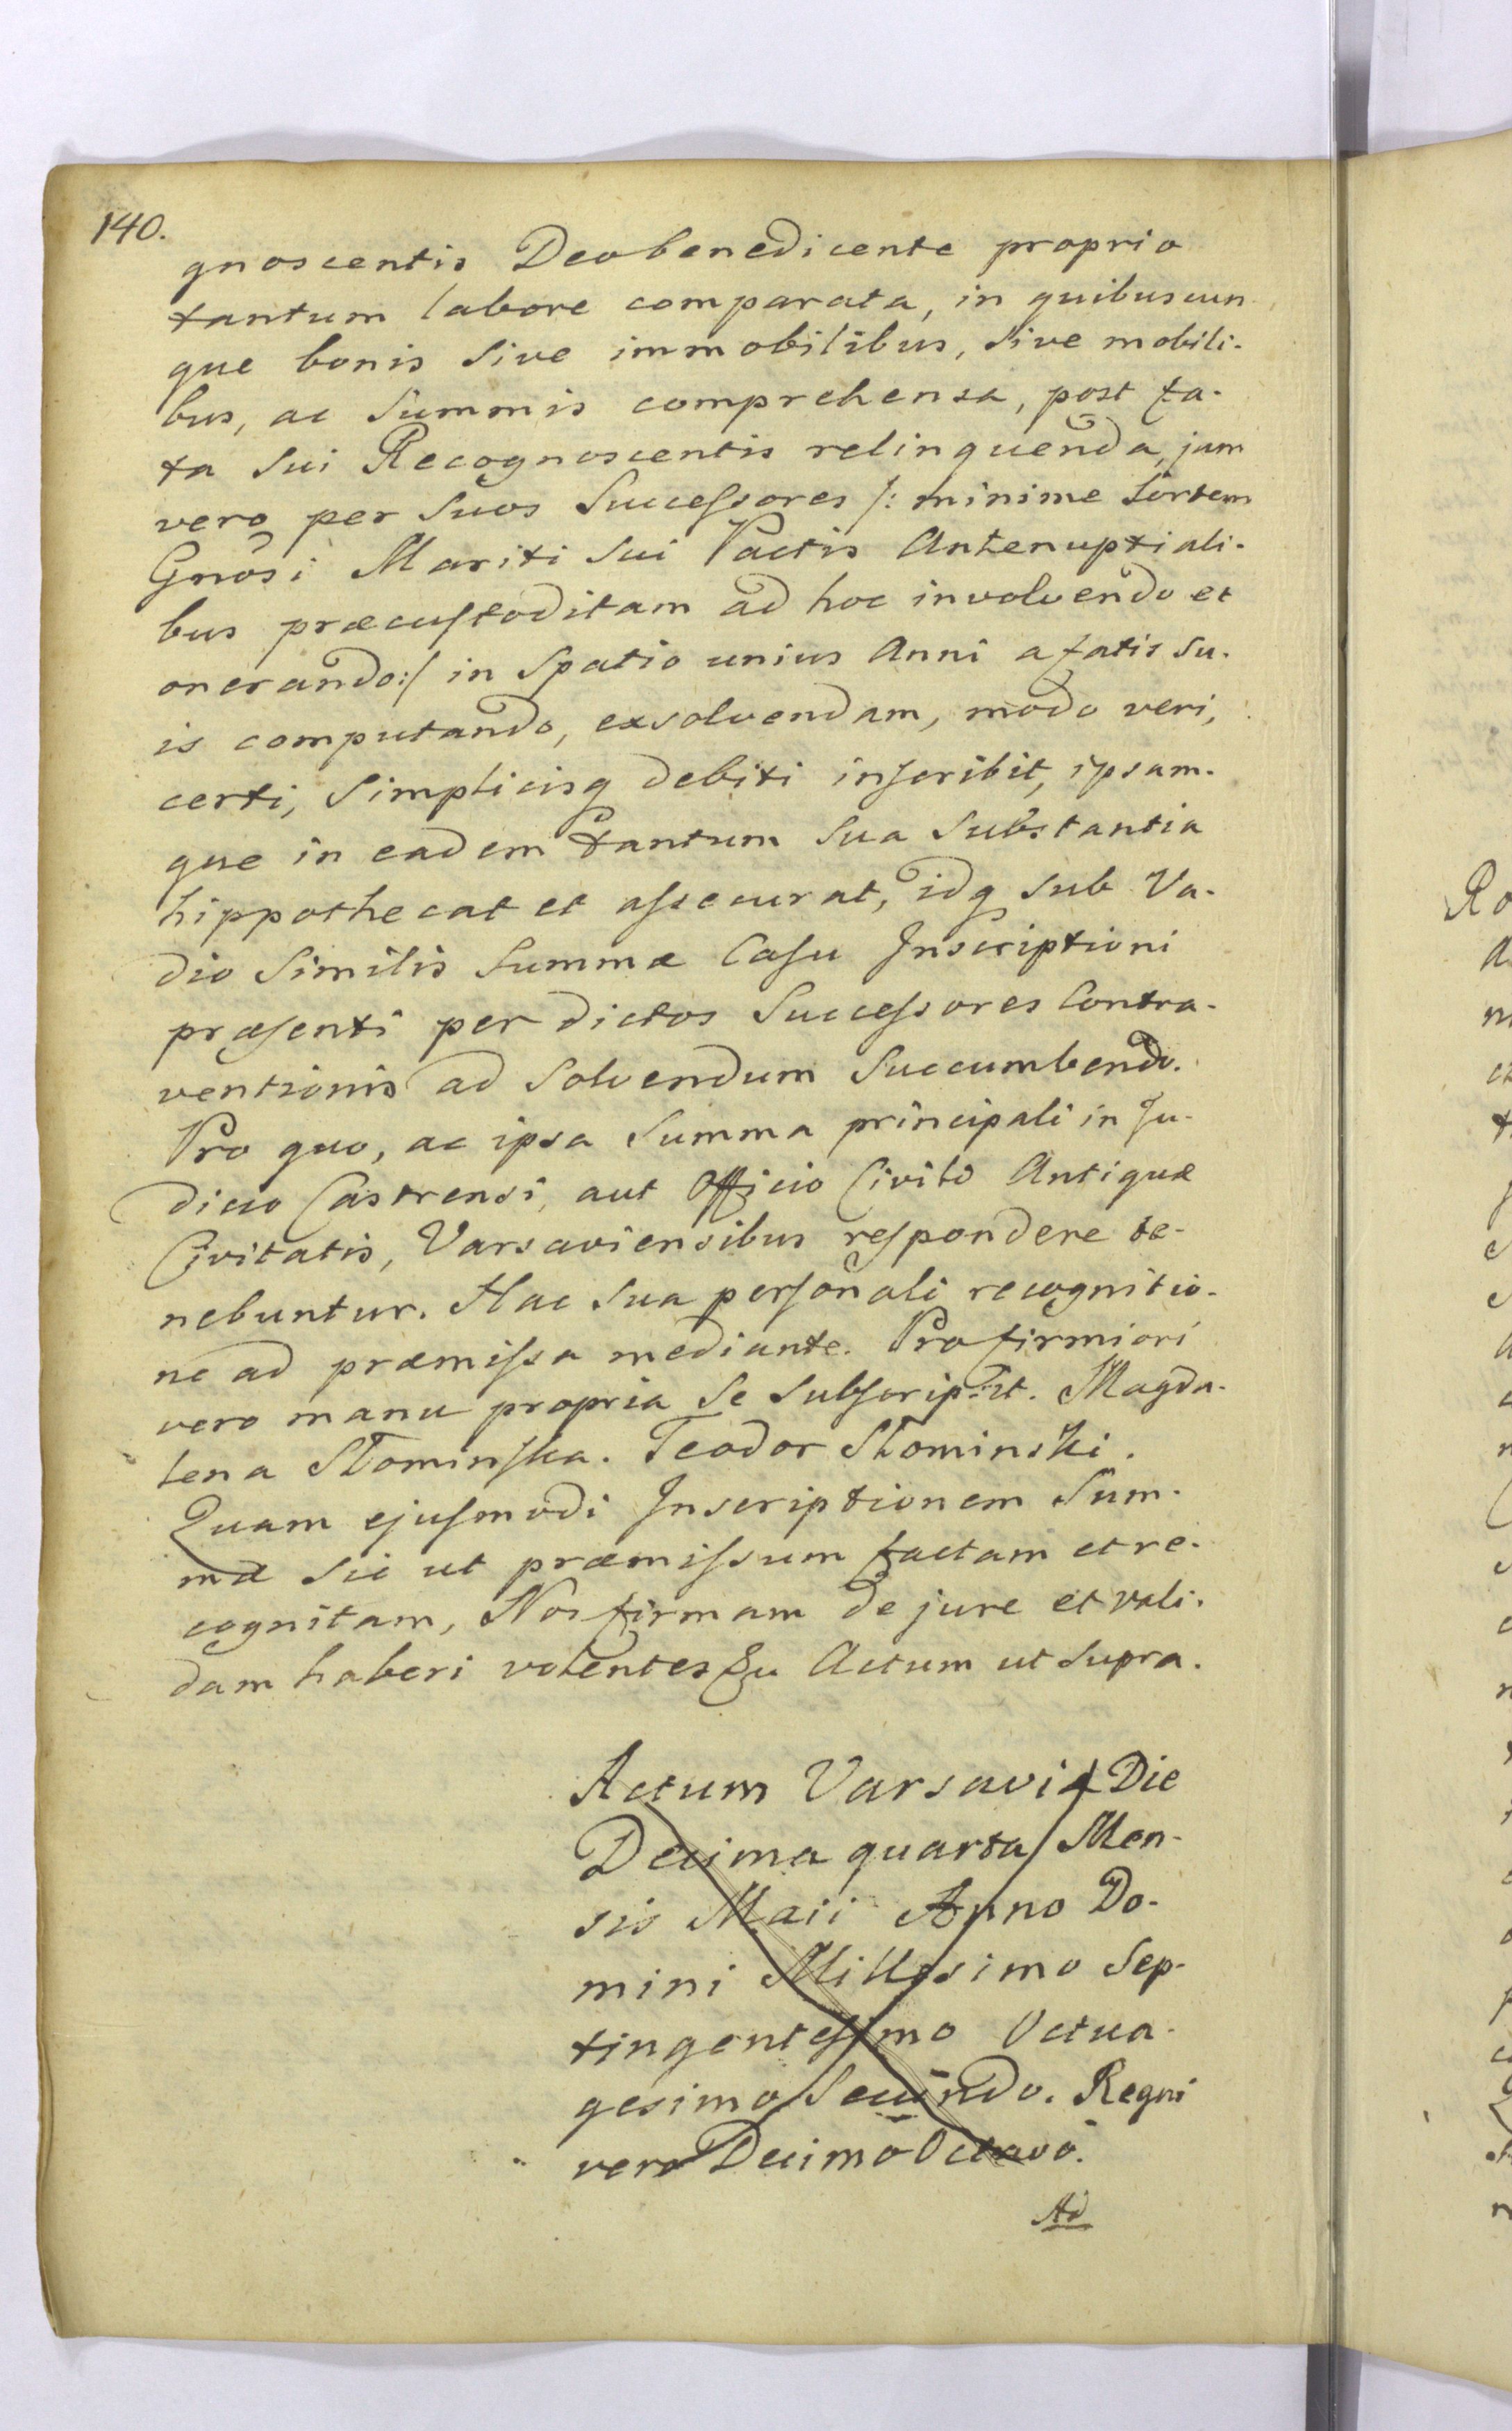 140.
gnoscentis Deo benedicente proprio
tantum labore comparata, in quibuscun
que bonis sive immobilibus, sive mobili-
bus, ac Summis comprehensa, post fa-
ta sui Recognoscentis relinquenda, jam
vero per suos Successores /: minime Sortem
Gnosi Mariti sui Pactis Antenuptiali-
bus præcustoditam ad hoc involvendo et
onerando :/ in Spatio unius Anni a fatis su-
is computando, exsolvendam, modo veri,
certi, Simplicisq debiti inscribit, ipsam-
que in eadem tantum sua Substantia
hippothecat et assecurat, idq sub Va-
dio Similis Summæ Casu Inscriptioni
præsenti per dictos Successores Contra-
ventionis ad Solvendum Succumbendo.
Pro quo, ac ipsa Summa principali in Ju-
dicio Castrensi, aut Officio Civili Antiquæ
Civitatis, Varsaviensibus respondere te-
nebuntur. Hac sua personali recognitio-
ne ad præmissa mediante. Pro firmiori
vero manu propria se subscripsit. Magda-
lena Słominska. Teodor Słominski.
Quam ejusmodi Inscriptionem Sum-
mæ sic ut præmissum factam et re-
cognitam, Nos firmam de jure et vali-
dam haberi volentes Actum ut supra.
Actum Varsaviæ Die
Decima quarta Men-
sis Maii Anno Do-
mini Millesimo Sep-
tingentesimo Octua-
gesimo Secundo. Regni
vero Decimo Octavo.
Ad